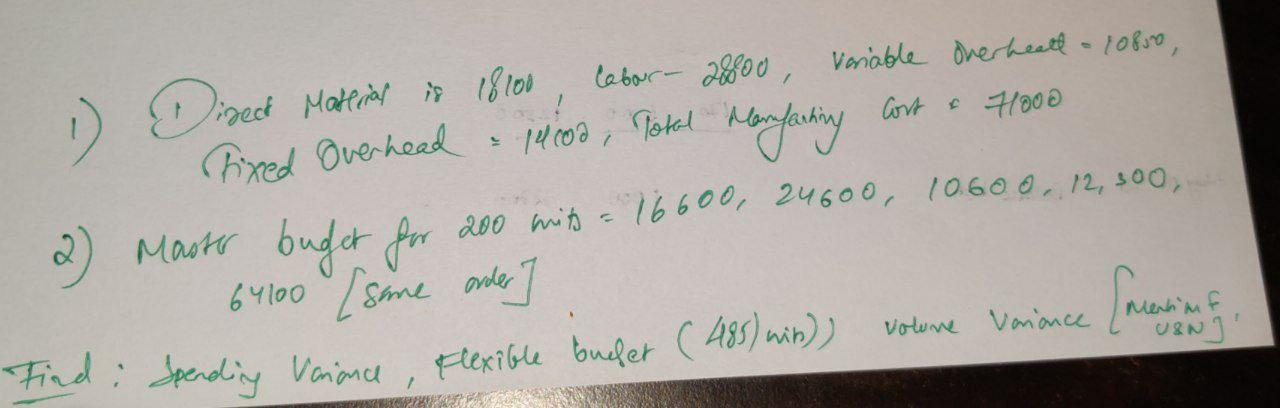 1) Direct Material is 18100, labour - 28800, Variable Overhead = 10850,
Fixed Overhead = 14000, Total Manfacturing Cost = 71000
2) Master budget for 200 units = 16600, 24600, 10600, 12,300,
64100 [Same order]
Find: Spending Variance, Flexible budget (485) units)) Volume Variance [Mention F
U & N].